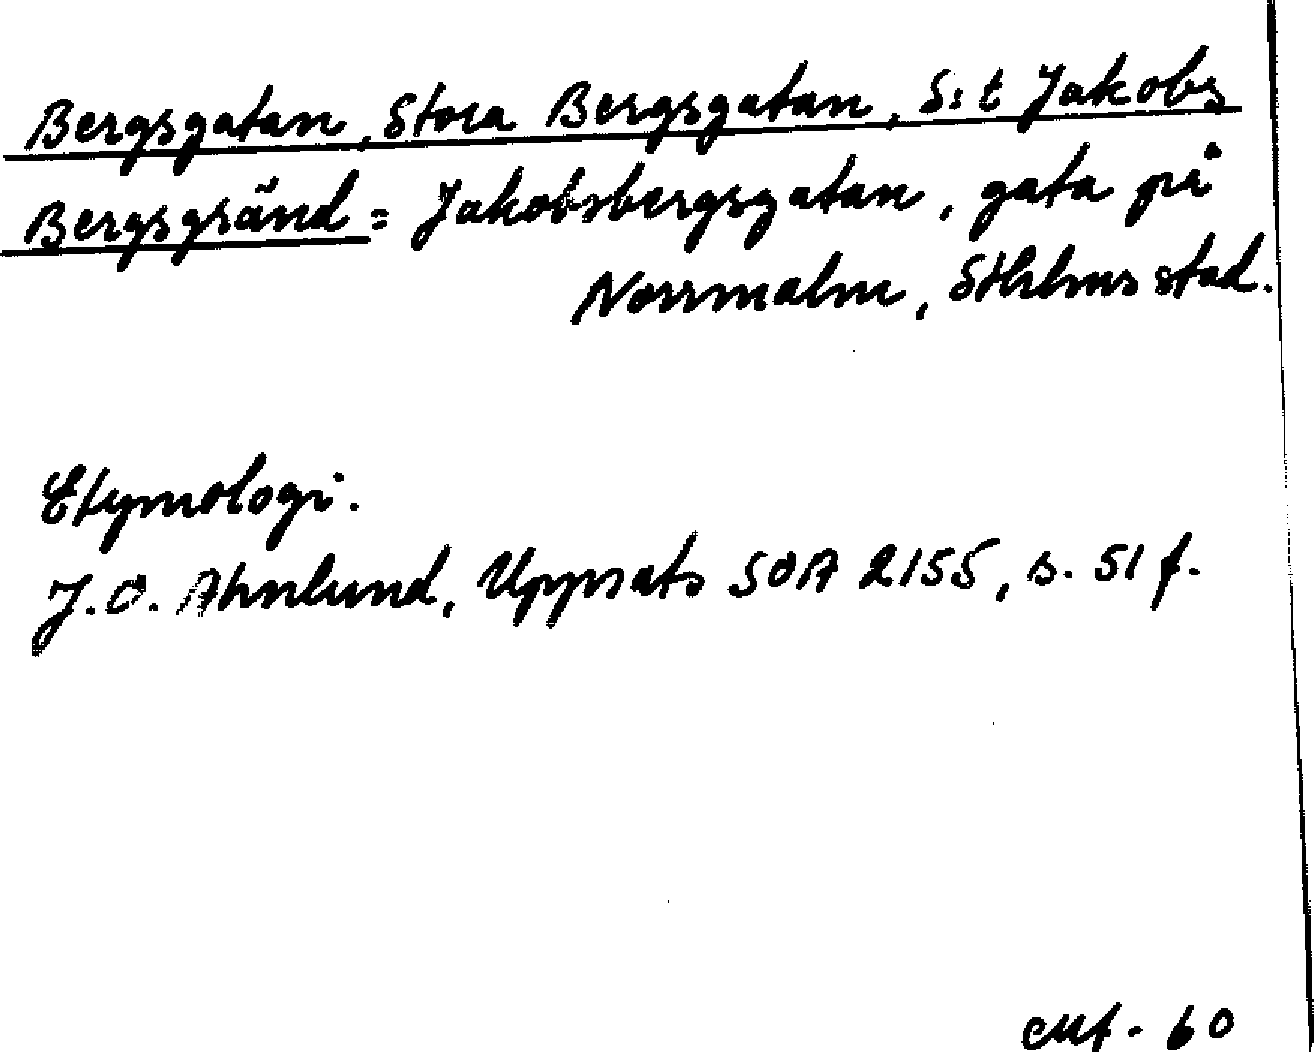 Bergsgatan, Stora Bergsgatan, S:t Jakobs
Bergsgränd = Jakobsbergsgatan, gata på
Norrmalm, Sthlms stad.
Etymologi.
J.O. Ahnlund, Uppsats SOA 2155, s. 51 f.
60